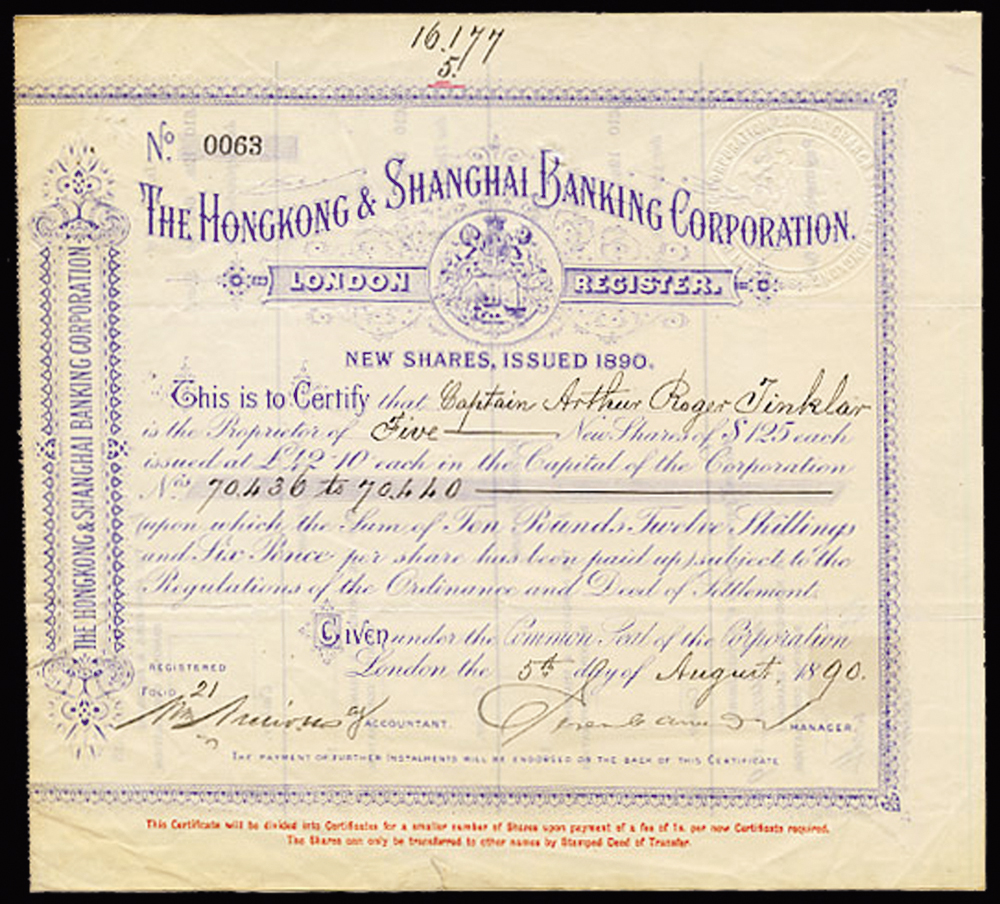 16.177
5.
No. 0063
THE HONGKONG & SHANGHAI BANKING CORPORATION.
LONDON REGISTER.
NEW SHARES, ISSUED 1890.
This is to Certify that Captain Arthur Roger Tinklar
is the Proprietor of Five New Shares of $125 each
issued at £12-10 each in the Capital of the Corporation
Nos. 70.436 to 70.440
upon which the Sum of Ten Pounds Twelve Shillings
and Six Pence per share has been paid up, subject to the
Regulations of the Ordinance and Deed of Settlement.
Given under the Common Seal of the Corporation
London the 5th day of August, 1890.
REGISTERED
FOLIO 21
ACCOUNTANT.
MANAGER.
THE PAYMENT OF FURTHER INSTALMENTS WILL BE ENDORSED ON THE BACK OF THIS CERTIFICATE
THE HONGKONG & SHANGHAI BANKING CORPORATION
This Certificate will be divided into Certificates for a smaller number of Shares upon payment of a fee of 1s. per new Certificate required.
The Shares can only be transferred to other names by Stamped Deed of Transfer.